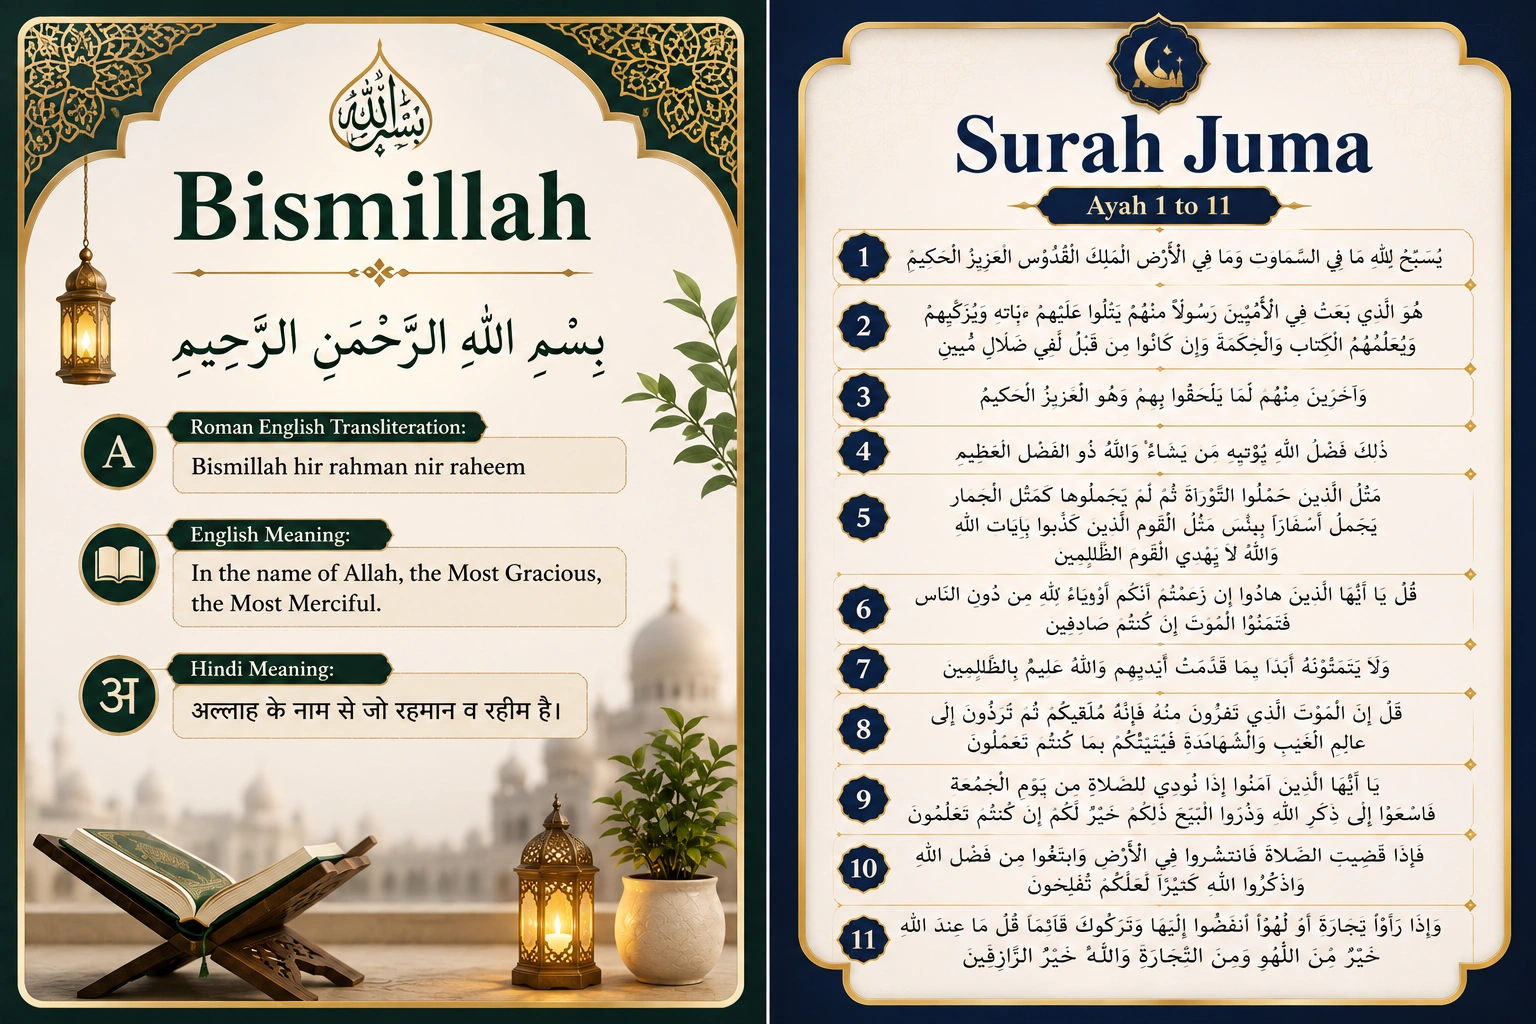 بسم الله
Bismillah
بِسْمِ اللهِ الرَّحْمَنِ الرَّحِيمِ
A
Roman English Transliteration:
Bismillah hir rahman nir raheem
English Meaning:
In the name of Allah, the Most Gracious,
the Most Merciful.
अ
Hindi Meaning:
अल्लाह के नाम से जो रहमान व रहीम है।
Surah Juma
Ayah 1 to 11
1
يُسَبّحْ لِلّٰهِ مَا فِي السَّمَاوَت وَمَا فِي الْأَرْض الْمَلِكَ الْقُدُّوْس الْعَزِيزُ الْحَكِيمْ
2
هُوَ الَّذِي بَعَتْ فِي الْأُمِيّينَ رَسُولاً منْهُمْ يَتْلُوا عَلَيْهِمْ وَيُزَكّيهِمْ
وَيُعَلّمُهُمُ الْكِتاب وَالْحِكَمَةَ وَإِن كَانُوا مِنَ قَبْلُ لَّفِي ضَلَالٍ
3
وَآخَرِينَ مِنْهُمْ لَمَا يَلْحَقُوا بِهِمْ وَهُو الْعَزِيزُ الْحَكيمْ
4
ذٰلِكَ فَضْلُ اللهِ يُوْتيِهِ مَن يَشَاءُ وَاللهُ ذُو الفَضْل الْعَظِيمِ
5
مَتْلُ الَّذِينَ حَمّلُوا التَّوْرَاةَ ثُمْ لَمْ يَجَملُوها كَمَتْل الْجَمَار
يَجَملُ أَسْفَارًا مَثْلُ الْقَومِ الَّذِين كَذّبوا بِآيَات اللهِ
وَاللهُ لاَ يَهْدي الْقَومَ الظَّلِلِمِين
6
قُلْ يَا أَيُّهَا الَّذِينَ هادُوا إِن زَعَمْتُمْ أَنَّكُم لِلّٰهِ مِن دُونِ النَاس
فَتَمَنُوْا الْمُوَتَ إِنَ كُنتُمْ صَادِفِين
7
وَلاَ يَتَمَتُوْنَهُ أَبَدًا بِمَا قَدَّمَتْ أَيْديهِم وَاللهُ عَلِيمُ بِالظَّلِلِمِينَ
8
قَلْ إِنَ الْمَوْتَ الَّذِي تَفرُّونَ منْهُ فَإِنَّهُ مُلَقيكُمْ ثُمَ تُرَدُّونَ إِلَى
عالِمِ الْغَيْبِ وَالْشَهَادَةِ بمَا كُنتُم تَعَمَلُونَ
9
يَا أَيُّهَا الَّذِينَ آمَنُوا إِذَا نُودِي للصَلاةِ مِن يَوْمِ الْجُمُعَة
فَاسْعَوْا إِلَى ذِكَرِ اللهِ وَذُرُوا الْبَيَعَ ذَلِكُمْ خَيْرٌ لَّكُمْ إِن كُنْتُمْ تَعَلَمُونَ
10
فَإِذَا قَضِيتِ الصَلاةَ فَانتشْروا فِي الْأَرْضِ وَابتَغُوا مِن فَضْلِ اللهِ
وَاذْكُرُوا اللهِ كَثيْرًا لَعَلَّكُمْ تُفْلِحُونَ
11
وَإِذَا رَأَوْا تِجَارَةَ أَوْ لَهْوًا انفَضُّوا إِلَيْهَا وَتَرَكُوكَ قَائِمًا قُلْ مَا عِندَ اللهِ
خَيْرٌ مِّنَ اللَّهْوِ وَمِنَ التّجَارَةِ وَاللَّهُ خَيْرُ الرَّازِقِينَ